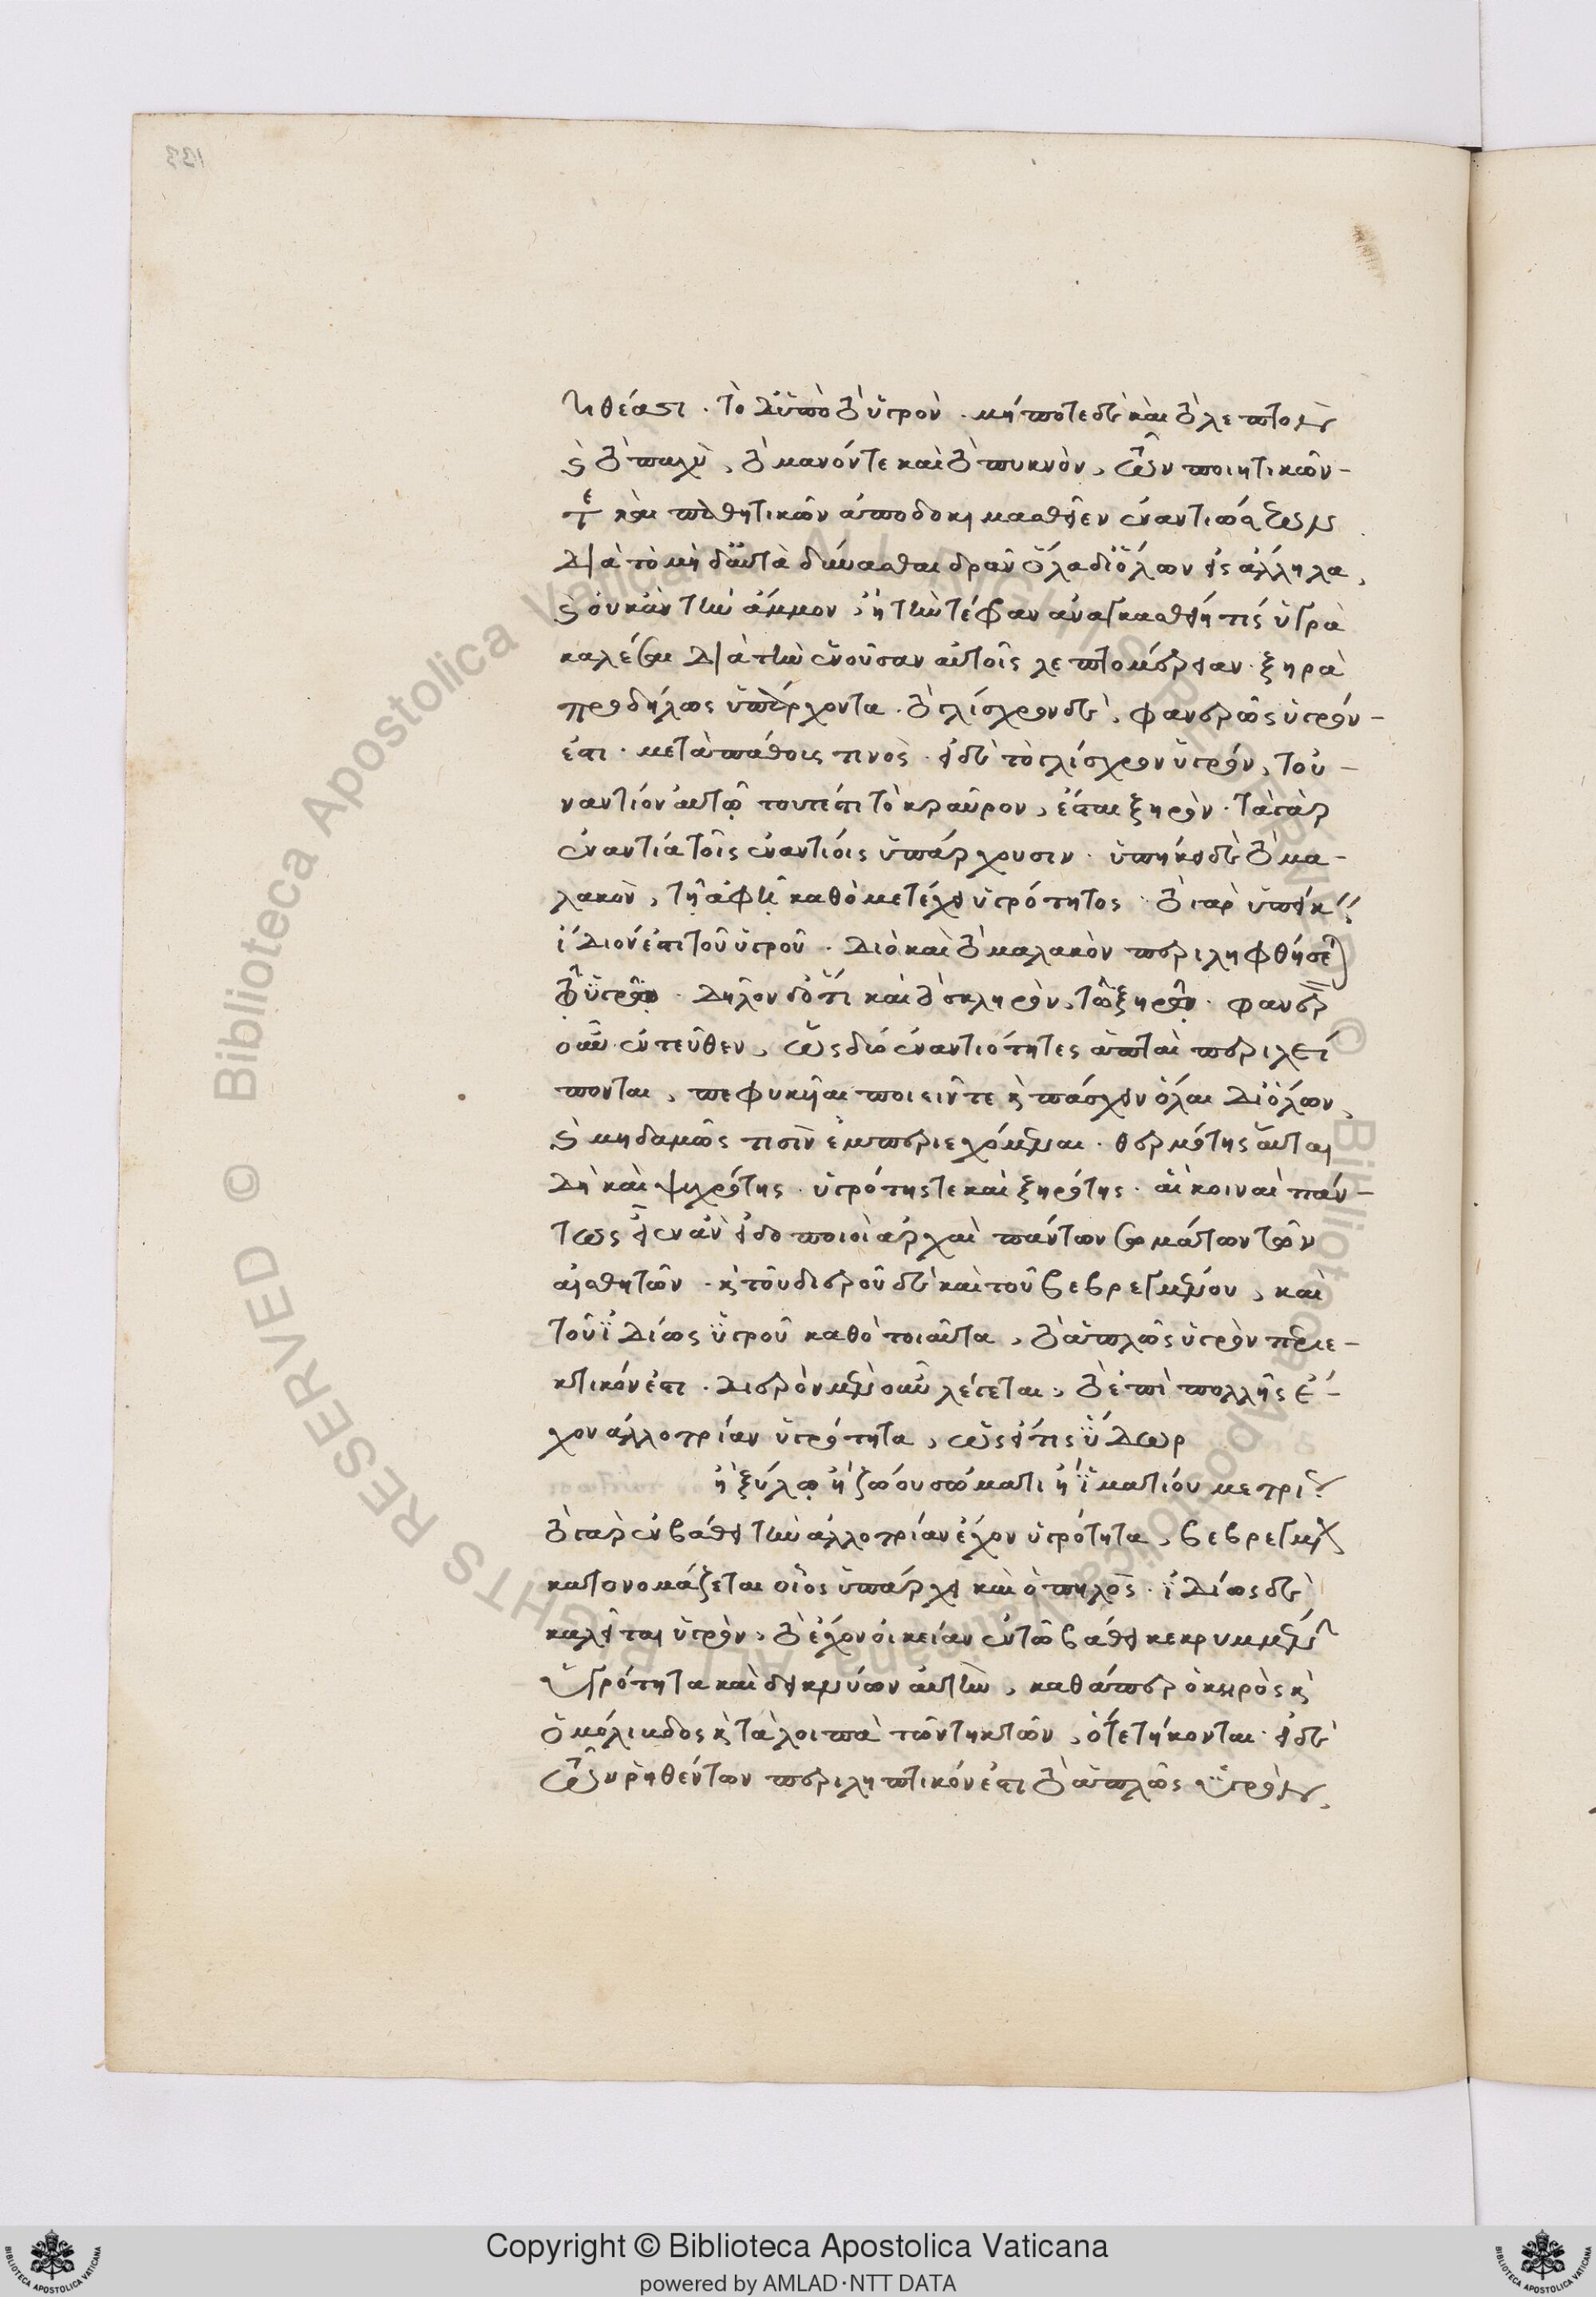 τιθέασι. τὸ δ' ὑπὸ τὸ ὑγρόν. μήποτε δὲ καὶ τὸ λεπτὸν
καὶ τὸ παχὺ, τὸ μανόν τε καὶ τὸ πυκνὸν, τῶν ποιητικῶν
τε καὶ παθητικῶν ἀποδοκιμασθεῖεν ἐναντιώσεων
διὰ τὸ μὴ δ' αὐτὰ δύνασθαι δρᾶν ὅλα δι' ὅλων εἰς ἄλληλα,
καὶ οὐκ ἂν τὴν ἄμμον, ἢ τὴν τέφραν ἀναγκασθείη τίς ὑγρὰ
καλέσαι διὰ τὴν ἐνοῦσαν αὐτοῖς λεπτομέρειαν. ξηρὰ
προδήλως ὑπάρχοντα. τὸ γλίσχρον δὲ, φανερῶς ὑγρόν
ἐστι. μετὰ πάθους τινὸς. εἰ δὲ τὸ γλίσχρον ὑγρόν, του
ναντίον αὐτῷ τουτέστι τὸ κραῦρον, ἔσται ξηρὸν. τὰ γὰρ
ἐναντία τοῖς ἐναντίοις ὑπάρχουσιν. ὑπείκει δὲ τὸ μα
λακὸν, τῇ ἁφῇ καθὸ μετέχει ὑγρότητος. τὸ γὰρ ὑπείκειν
ἴδιόν ἐστι τοῦ ὑγροῦ. διὸ καὶ τὸ μαλακὸν περιληφθήσεται
τῷ ὑγρῷ. δῆλον δ' ὅτι καὶ τὸ σκληρὸν, τῷ ξηρῷ. φανερὸν
οὖν ἐντεῦθεν, ὡς δύο ἐναντιότητες ἁπταὶ περιλεί
πονται, πεφυκῆαι ποιεῖν τε καὶ πάσχειν ὅλαι δι' ὅλων,
καὶ μηδαμῶς τισὶν ἐμπεριεχόμεναι. θερμότης αὗται
δὴ καὶ ψυχρότης. ὑγρότης τε καὶ ξηρότης. αἱ κοιναὶ πάν
τως εἶεν ἂν εἰδοποιοὶ ἀρχαὶ πάντων σωμάτων τῶν
αἰσθητῶν. καὶ τοῦ διεροῦ δὲ καὶ τοῦ βεβρεγμένου, καὶ
τοῦ ἰδίως ὑγροῦ καθὸ τοιαῦτα, τὸ ἁπλῶς ὑγρὸν περιε
κτικόν ἐστι. διερὸν μὲν οὖν λέγεται, τὸ ἐπὶ πολλῆς ἔ
χον ἀλλοτρίαν ὑγρότητα, ὡς εἴ τις ὕδωρ
ἢ ξύλῳ ἢ ζώου σώματι ἢ ἱματίου μετρι
τὸ γὰρ ἐν βάθει τὴν ἀλλοτρίαν ἔχον ὑγρότητα, βεβρεγμένον
κατονομάζεται οἷος ὑπάρχει καὶ ὁ πηλὸς. ἰδίως δὲ
καλεῖται ὑγρὸν, τὸ ἔχον οἰκείαν ἐν τῷ βάθει κεκρυμμένην
ὑγρότητα καὶ δεικνύων αὐτὴν, καθάπερ ὁ κηρὸς καὶ
ὁ μόλιβδος καὶ τὰ λοιπὰ τῶν τηκτῶν, ὅτε τήκονται. εἰ δὲ
τῶν ῥηθέντων περιληπτικόν ἐστι τὸ ἁπλῶς ὑγρὸν,